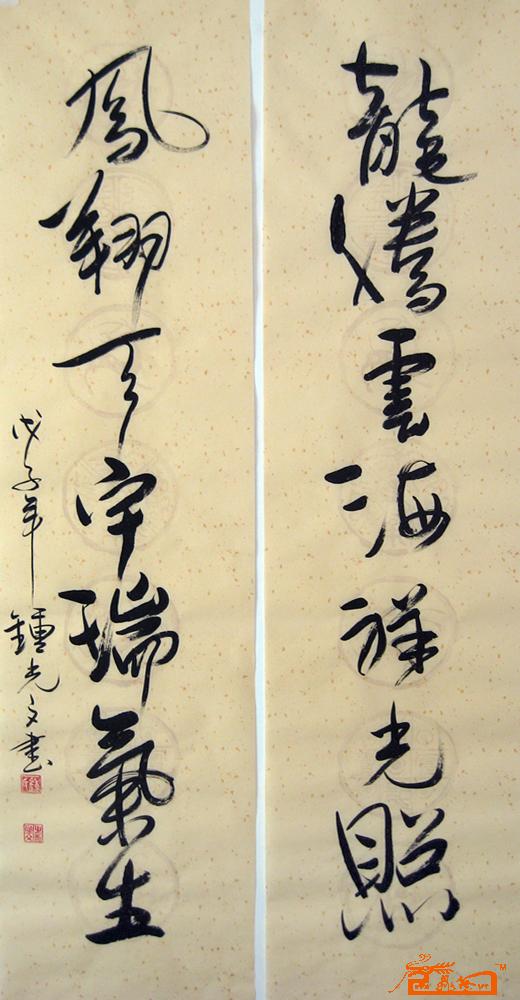 龍騰雲海祥光照
鳳翔天宇瑞氣生
戊子年鍾光文書